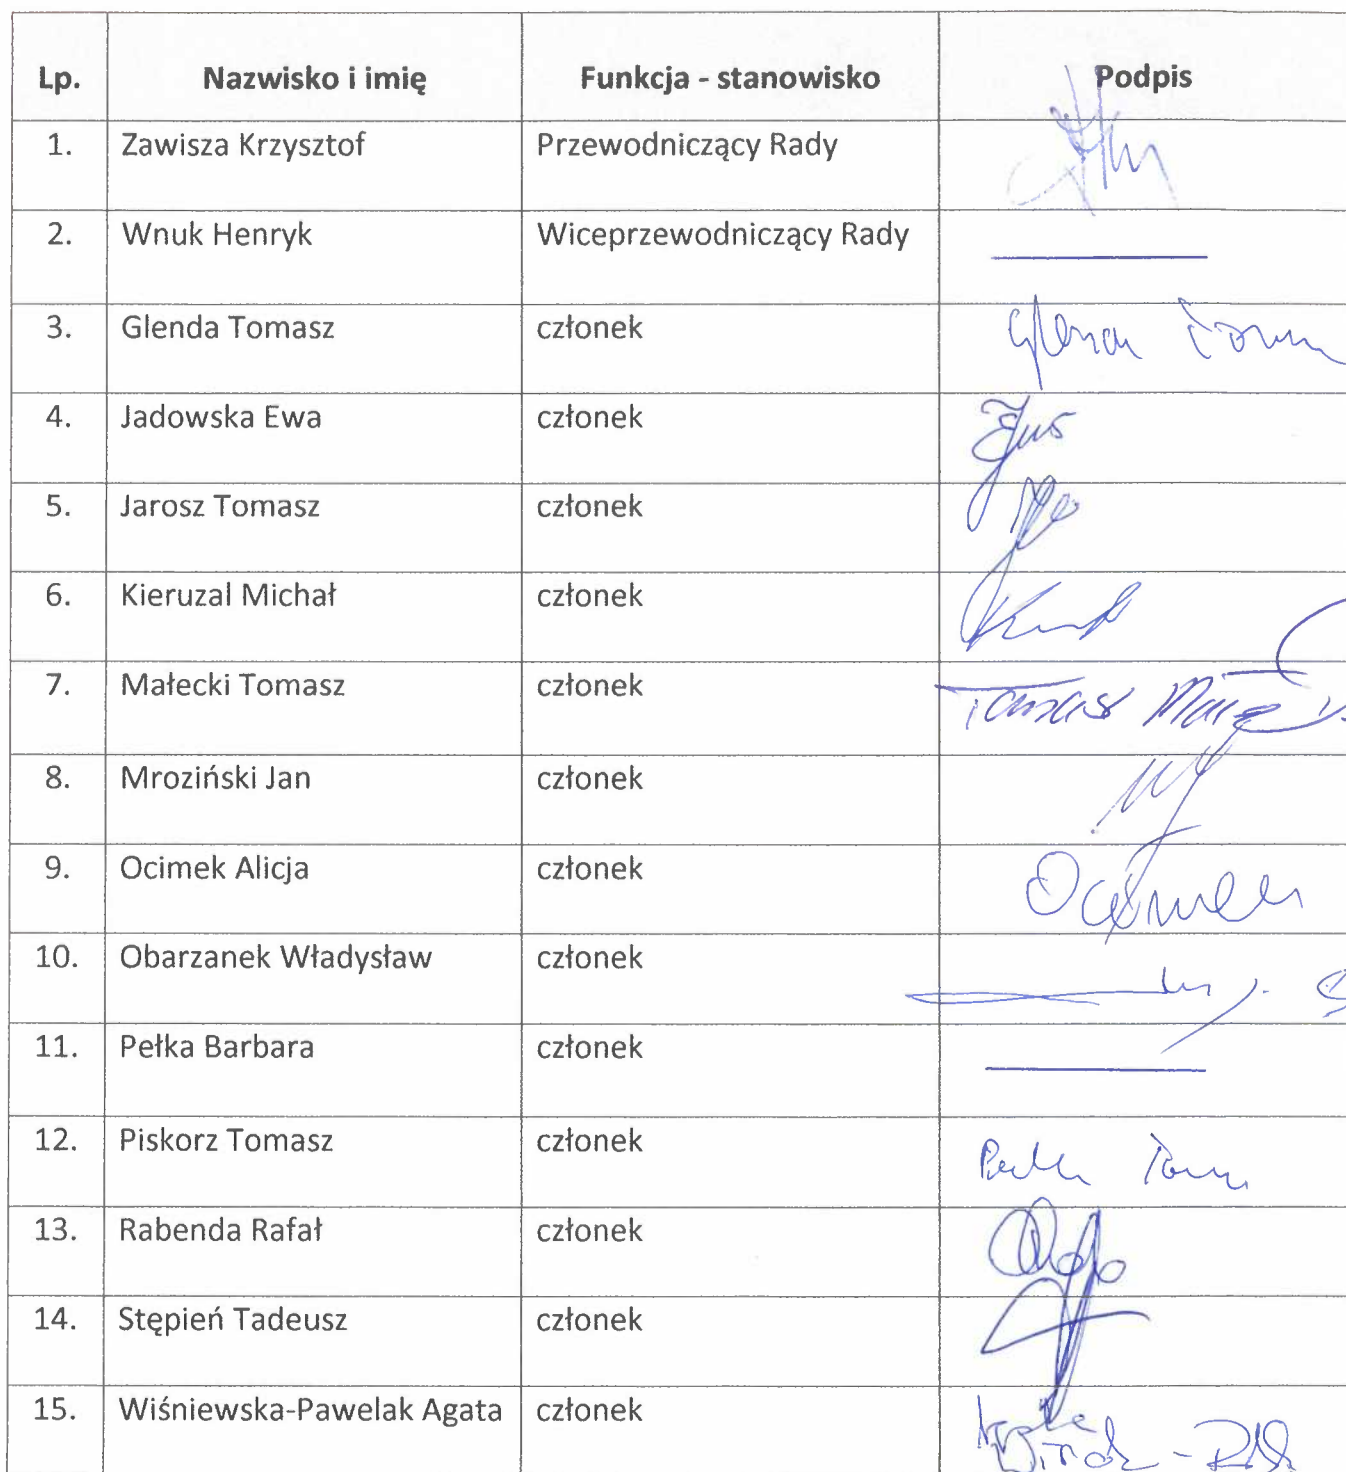 Lp. Nazwisko i imię Funkcja - stanowisko Podpis
1. Zawisza Krzysztof Przewodniczący Rady
2. Wnuk Henryk Wiceprzewodniczący Rady
3. Glenda Tomasz członek
4. Jadowska Ewa członek
5. Jarosz Tomasz członek
6. Kieruzal Michał członek
7. Małecki Tomasz członek Tomasz
8. Mroziński Jan członek
9. Ocimek Alicja członek Ocimek
10. Obarzanek Władysław członek
11. Pełka Barbara członek
12. Piskorz Tomasz członek
13. Rabenda Rafał członek
14. Stępień Tadeusz członek
15. Wiśniewska-Pawelak Agata członek